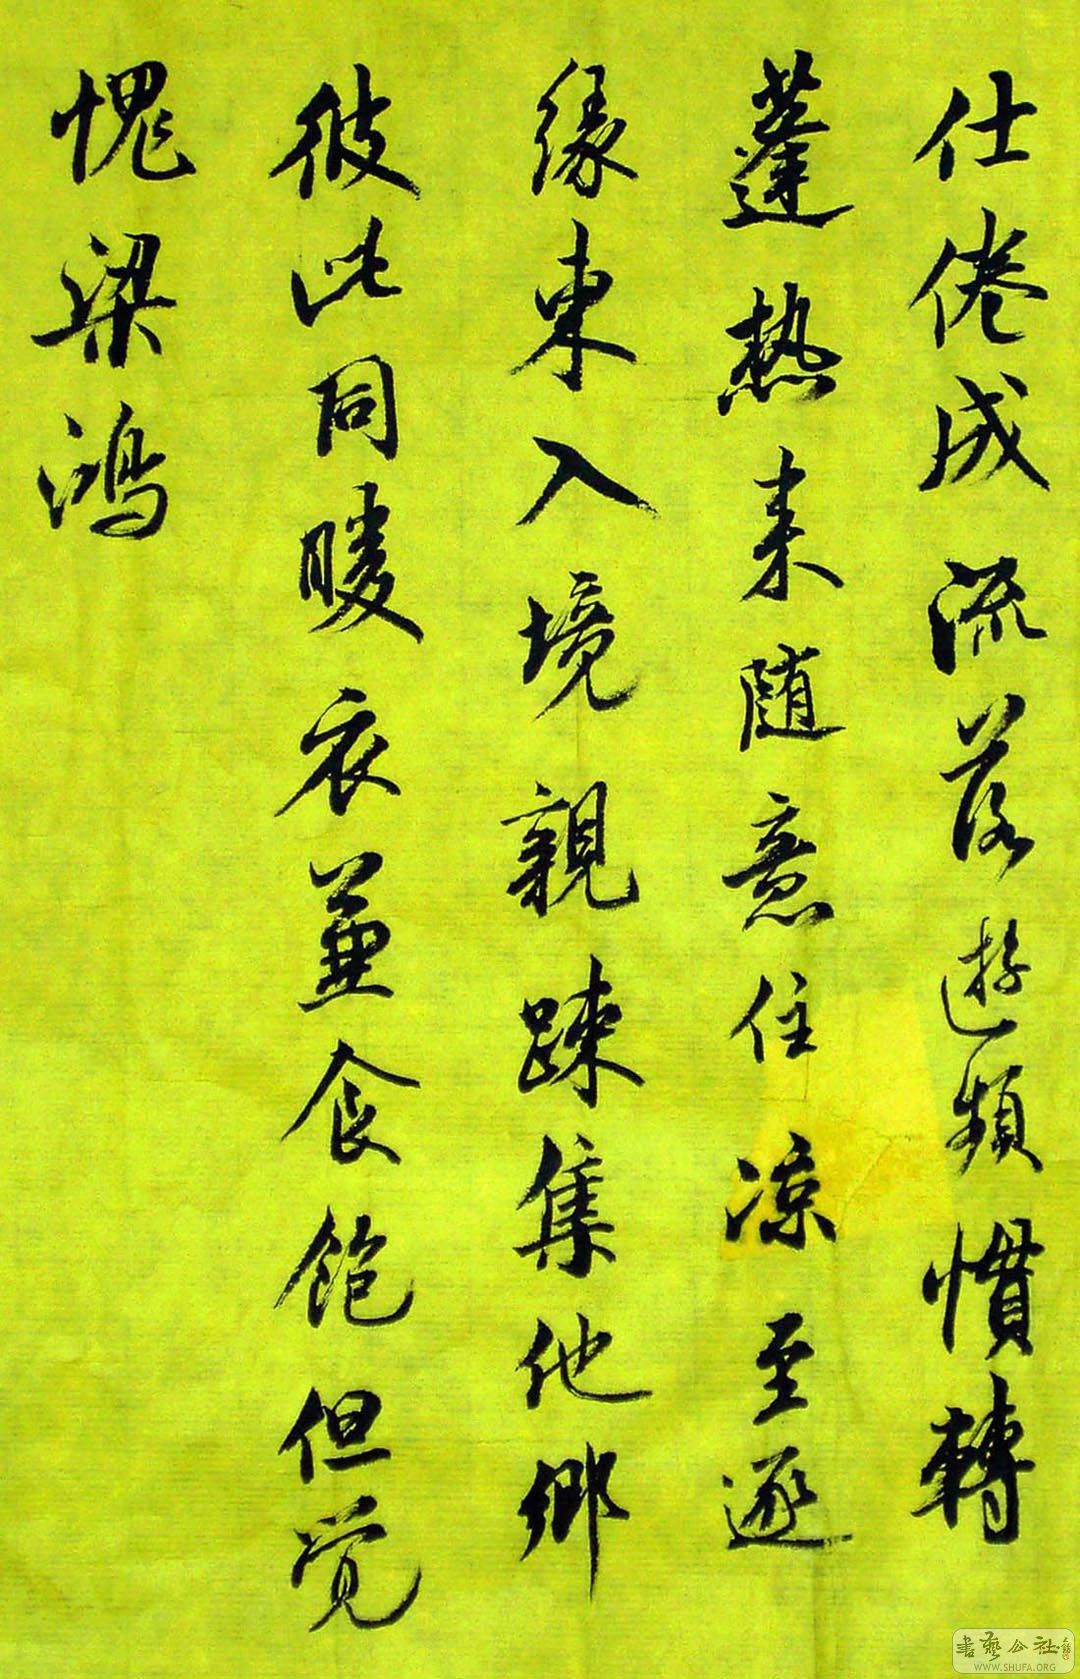 仕倦成流落遊頻慣轉
蓬熱来随意住凉至逐
緣東入境親踈集他鄉
彼此同暖衣兼食飽但覺
愧梁鴻
書藝公社
WWW.SHUFA.ORG